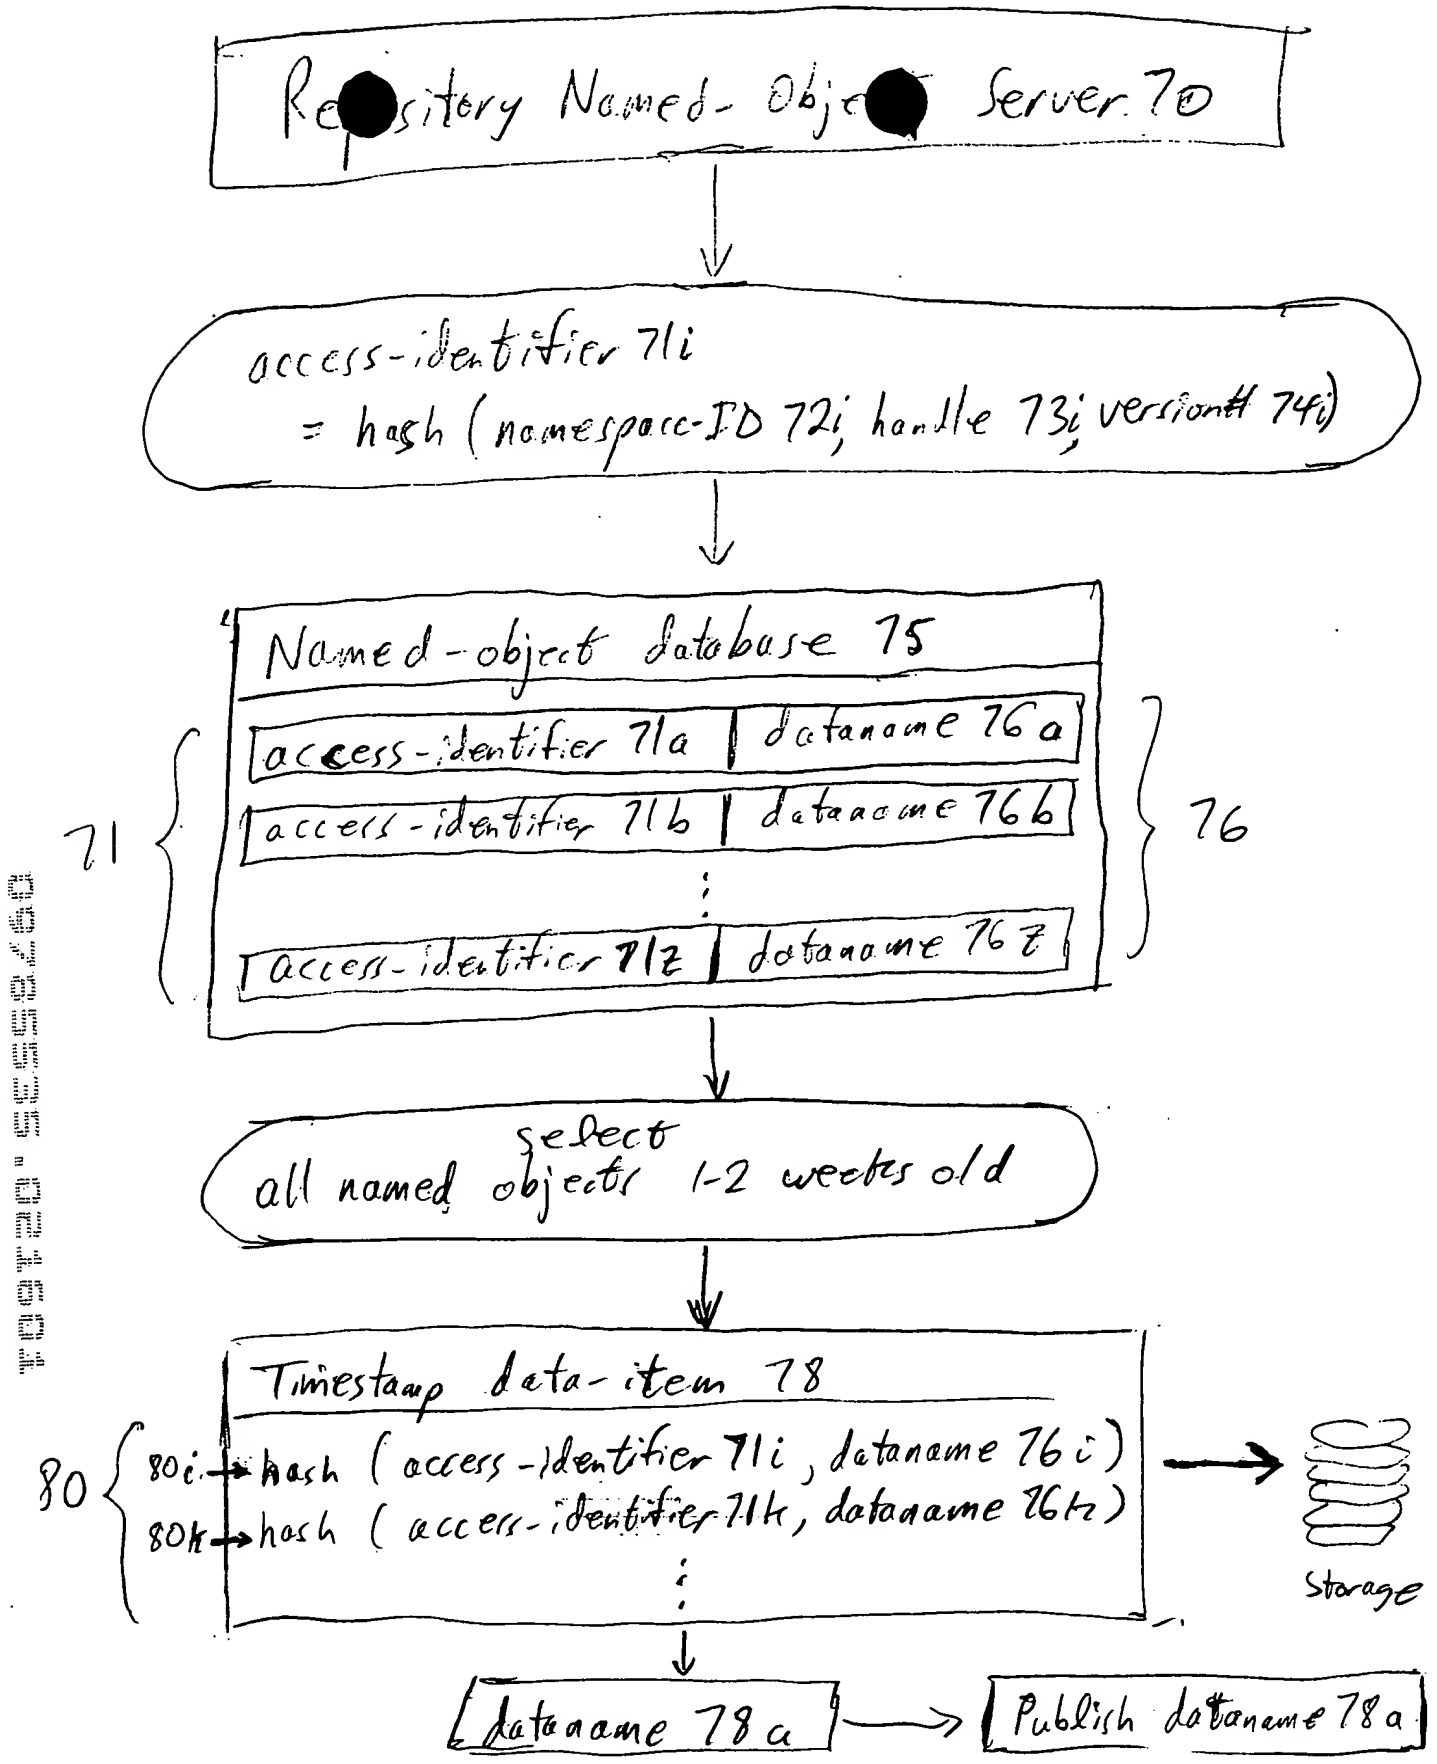 Repository Named-Object Server 70
access-identifier 71i
= hash (namespace-ID 72i, handle 73i, version# 74i)
Named-object database 75
access-identifier 71a | dataname 76a
access-identifier 71b | dataname 76b
⋮
access-identifier 71z | dataname 76z
71
76
select
all named objects 1-2 weeks old
Timestamp data-item 78
80i → hash (access-identifier 71i, dataname 76i)
80k → hash (access-identifier 71k, dataname 76k)
⋮
80
Storage
dataname 78a
Publish dataname 78a
09785535.021601